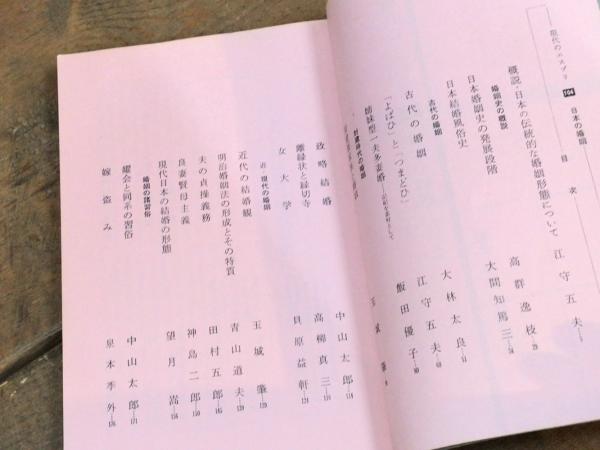 現代のエスプリ 104 日本の婚姻
目次
概説・日本の伝統的な婚姻形態について 江守五夫 5
婚姻史の概説
日本婚姻史の発展段階 高群逸枝 29
日本結婚風俗史 大間知篤三 38
古代の婚姻
古代の婚姻 大林太良 51
「よばひ」と「つまとひ」 江守五夫 68
姉妹型一夫多妻婚 飯田優子 80
封建時代の婚姻
政略結婚 中山太郎 114
離縁状と縁切寺 高柳真三
女大学 貝原益軒 124
近・現代の婚姻
近代の結婚観 玉城肇 129
明治婚姻法の形成とその特質 青山道夫 139
夫の貞操義務 田村五郎 146
良妻賢母主義 神島二郎 150
現代日本の結婚の形態 望月嵩 156
婚姻の諸習俗
嬥会と同系の習俗 中山太郎 171
嫁盗み 泉本季外 176